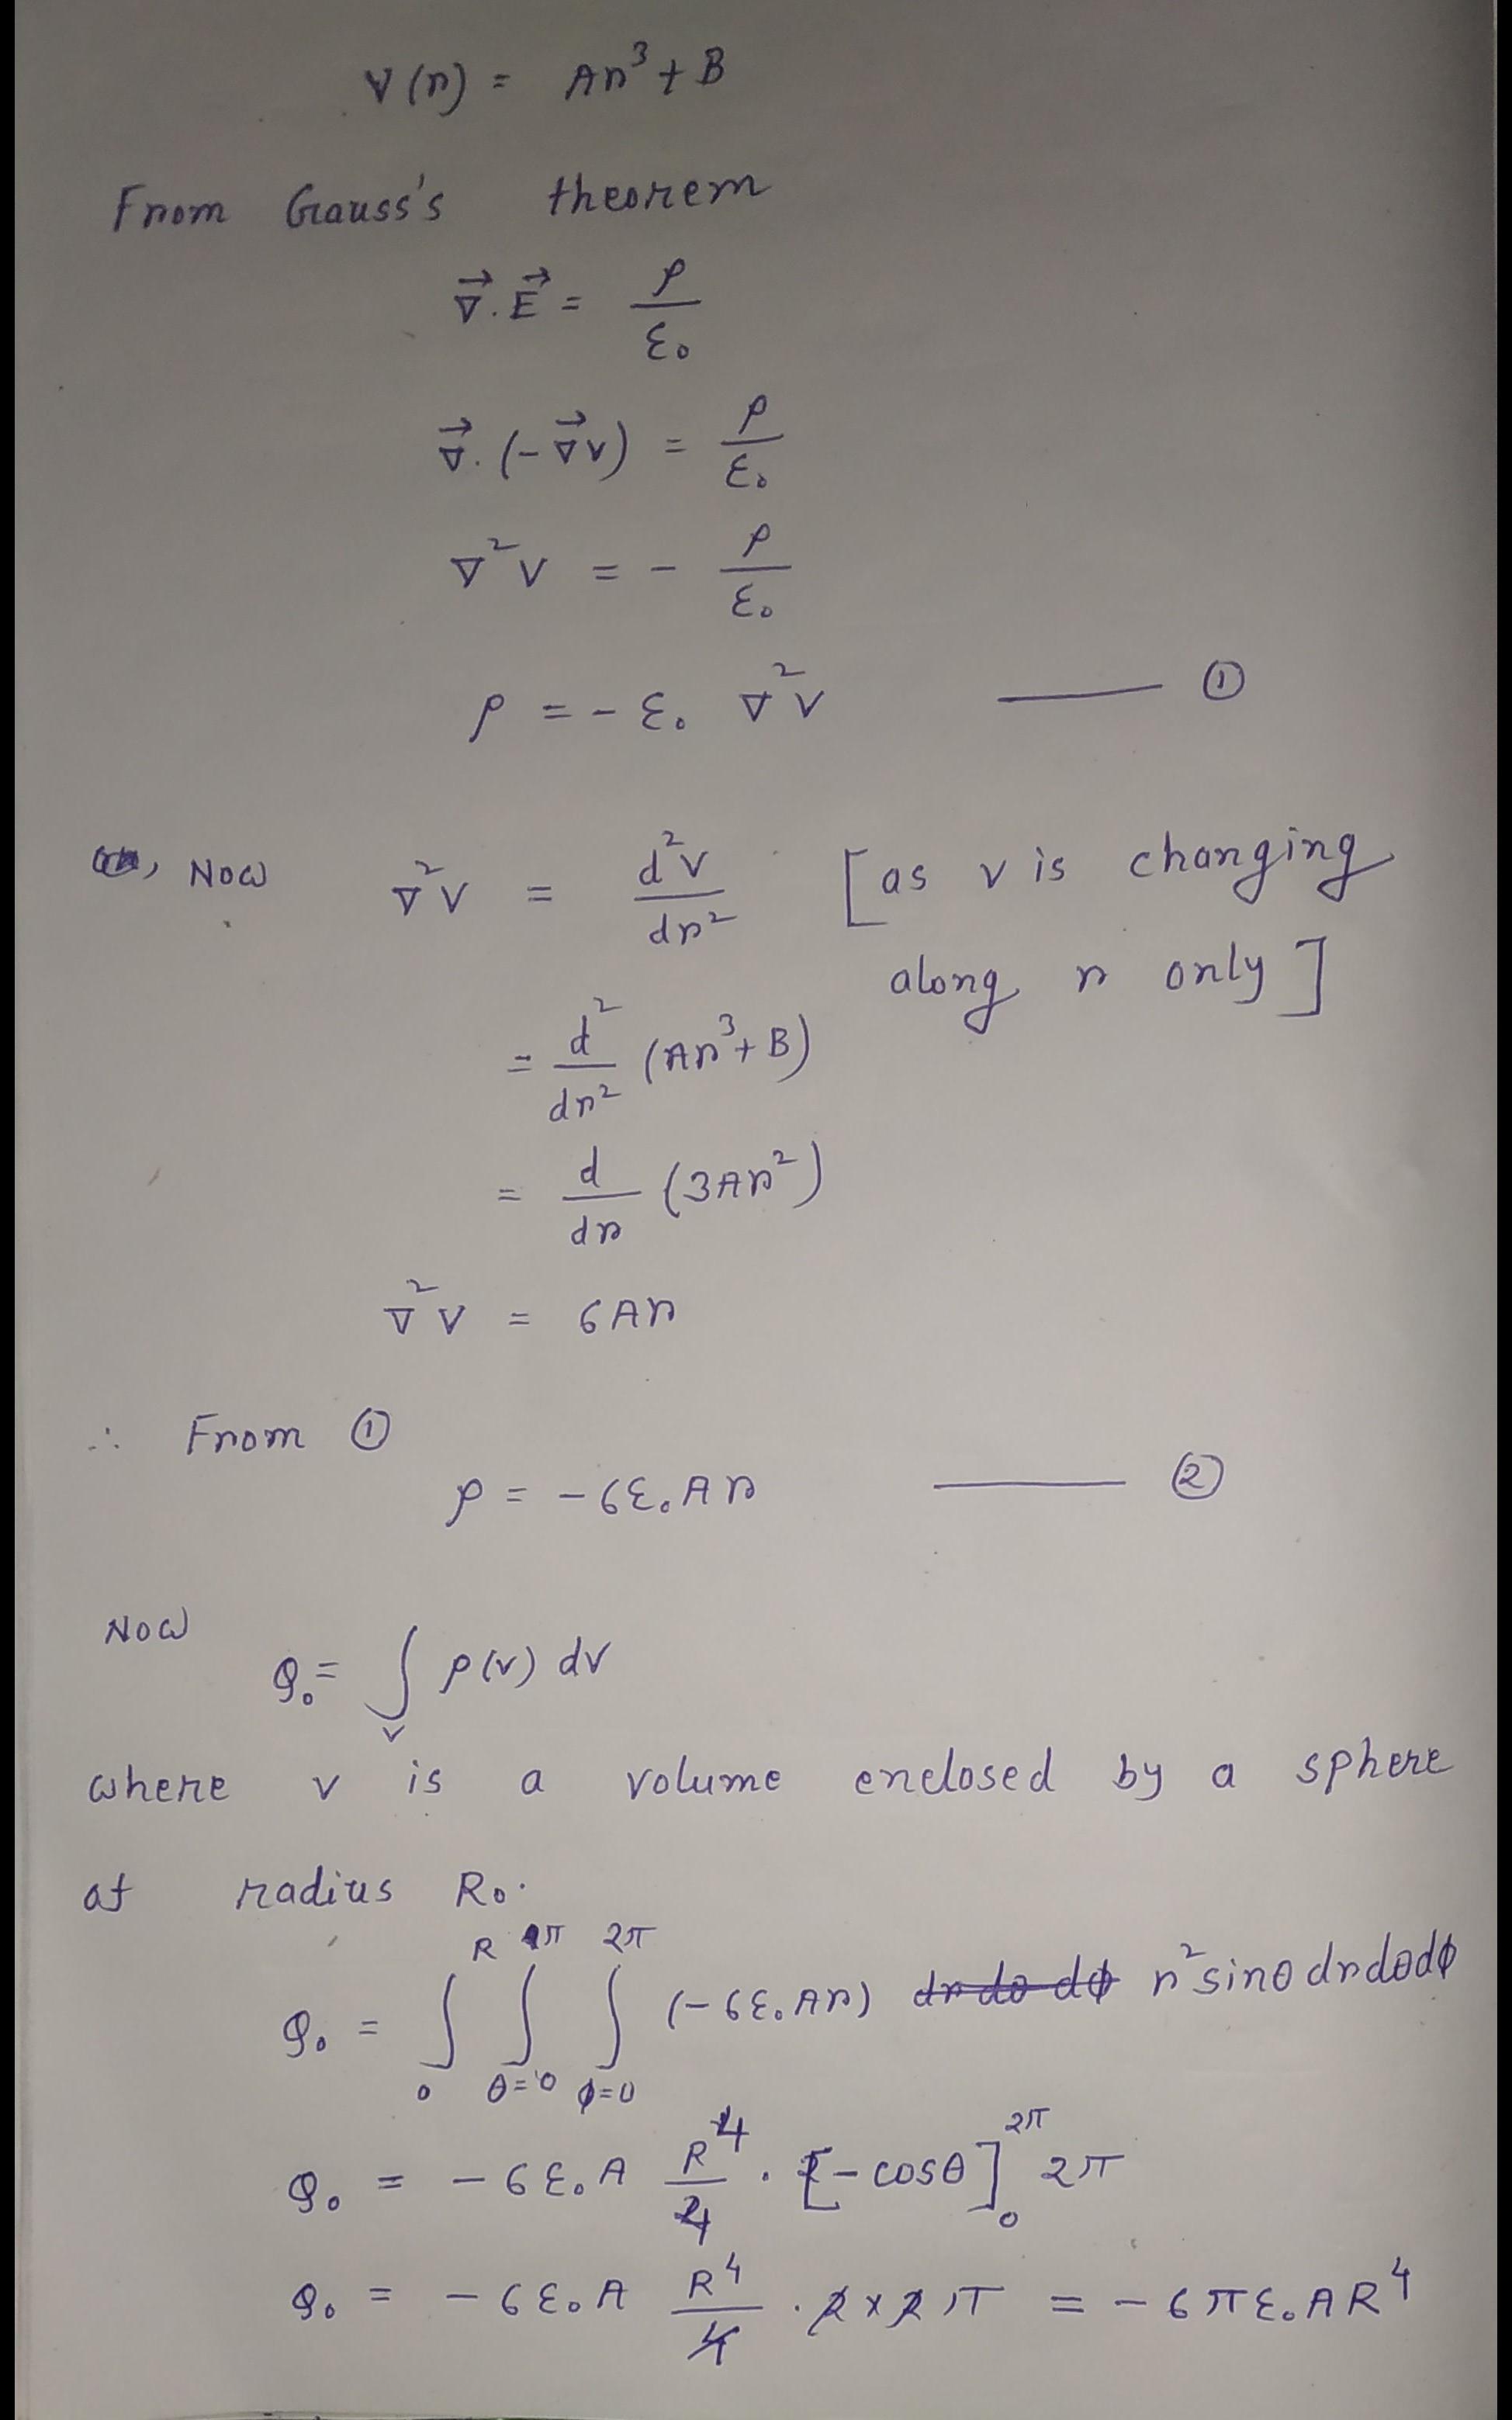 V(r) = Ar³ + B
From Gauss's theorem
∇⃗.E⃗ = ρ/ε₀
∇⃗.(-∇⃗V) = ρ/ε₀
∇²V = - ρ/ε₀
ρ = - ε₀ ∇²V ——— ①
, Now ∇²V = d²V/dr² [as V is changing
along r only]
= d²/dr² (Ar³ + B)
= d/dr (3Ar²)
∇²V = 6Ar
∴ From ①
ρ = -6ε₀Ar ——— ②
Now
Q₀ = ∫_V ρ(v) dv
where v is a volume enclosed by a sphere
at radius R₀.
Q₀ = ∫₀^R ∫_{θ=0}^{2π} ∫_{φ=0}^{2π} (-6ε₀Ar) dr dθ dφ r² sinθ dr dθ dφ
Q₀ = -6ε₀A R⁴/4 . [-cosθ]₀^{2π} 2π
Q₀ = -6ε₀A R⁴/4 . 2×2π = -6πε₀AR⁴